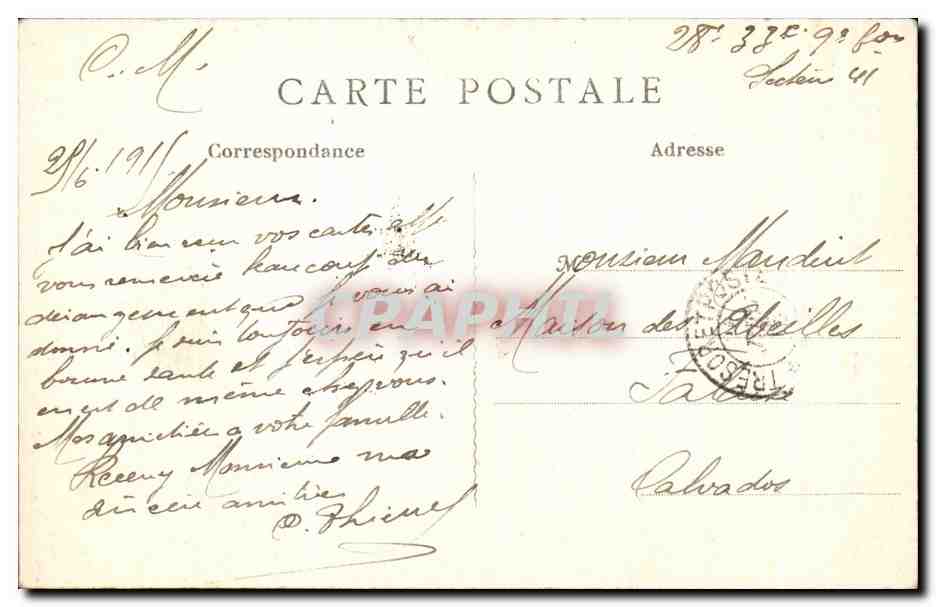 C. M.
28e 33e 9e
Secteur 41
CARTE POSTALE
Correspondance
Adresse
1915
Monsieur.
J'ai bien reçu vos cartes et
vous remercie beaucoup du
dérangement que je vous ai
donné. Je suis toujours en
bonne santé et j'espère qu'il
en est de même chez vous.
Mes amitiés à votre famille.
Recevez Monsieur ma
sincère amitiés
Monsieur
Maison des Abeilles
Falaise
Calvados
TRESOR ET POSTES
CRAPHIT